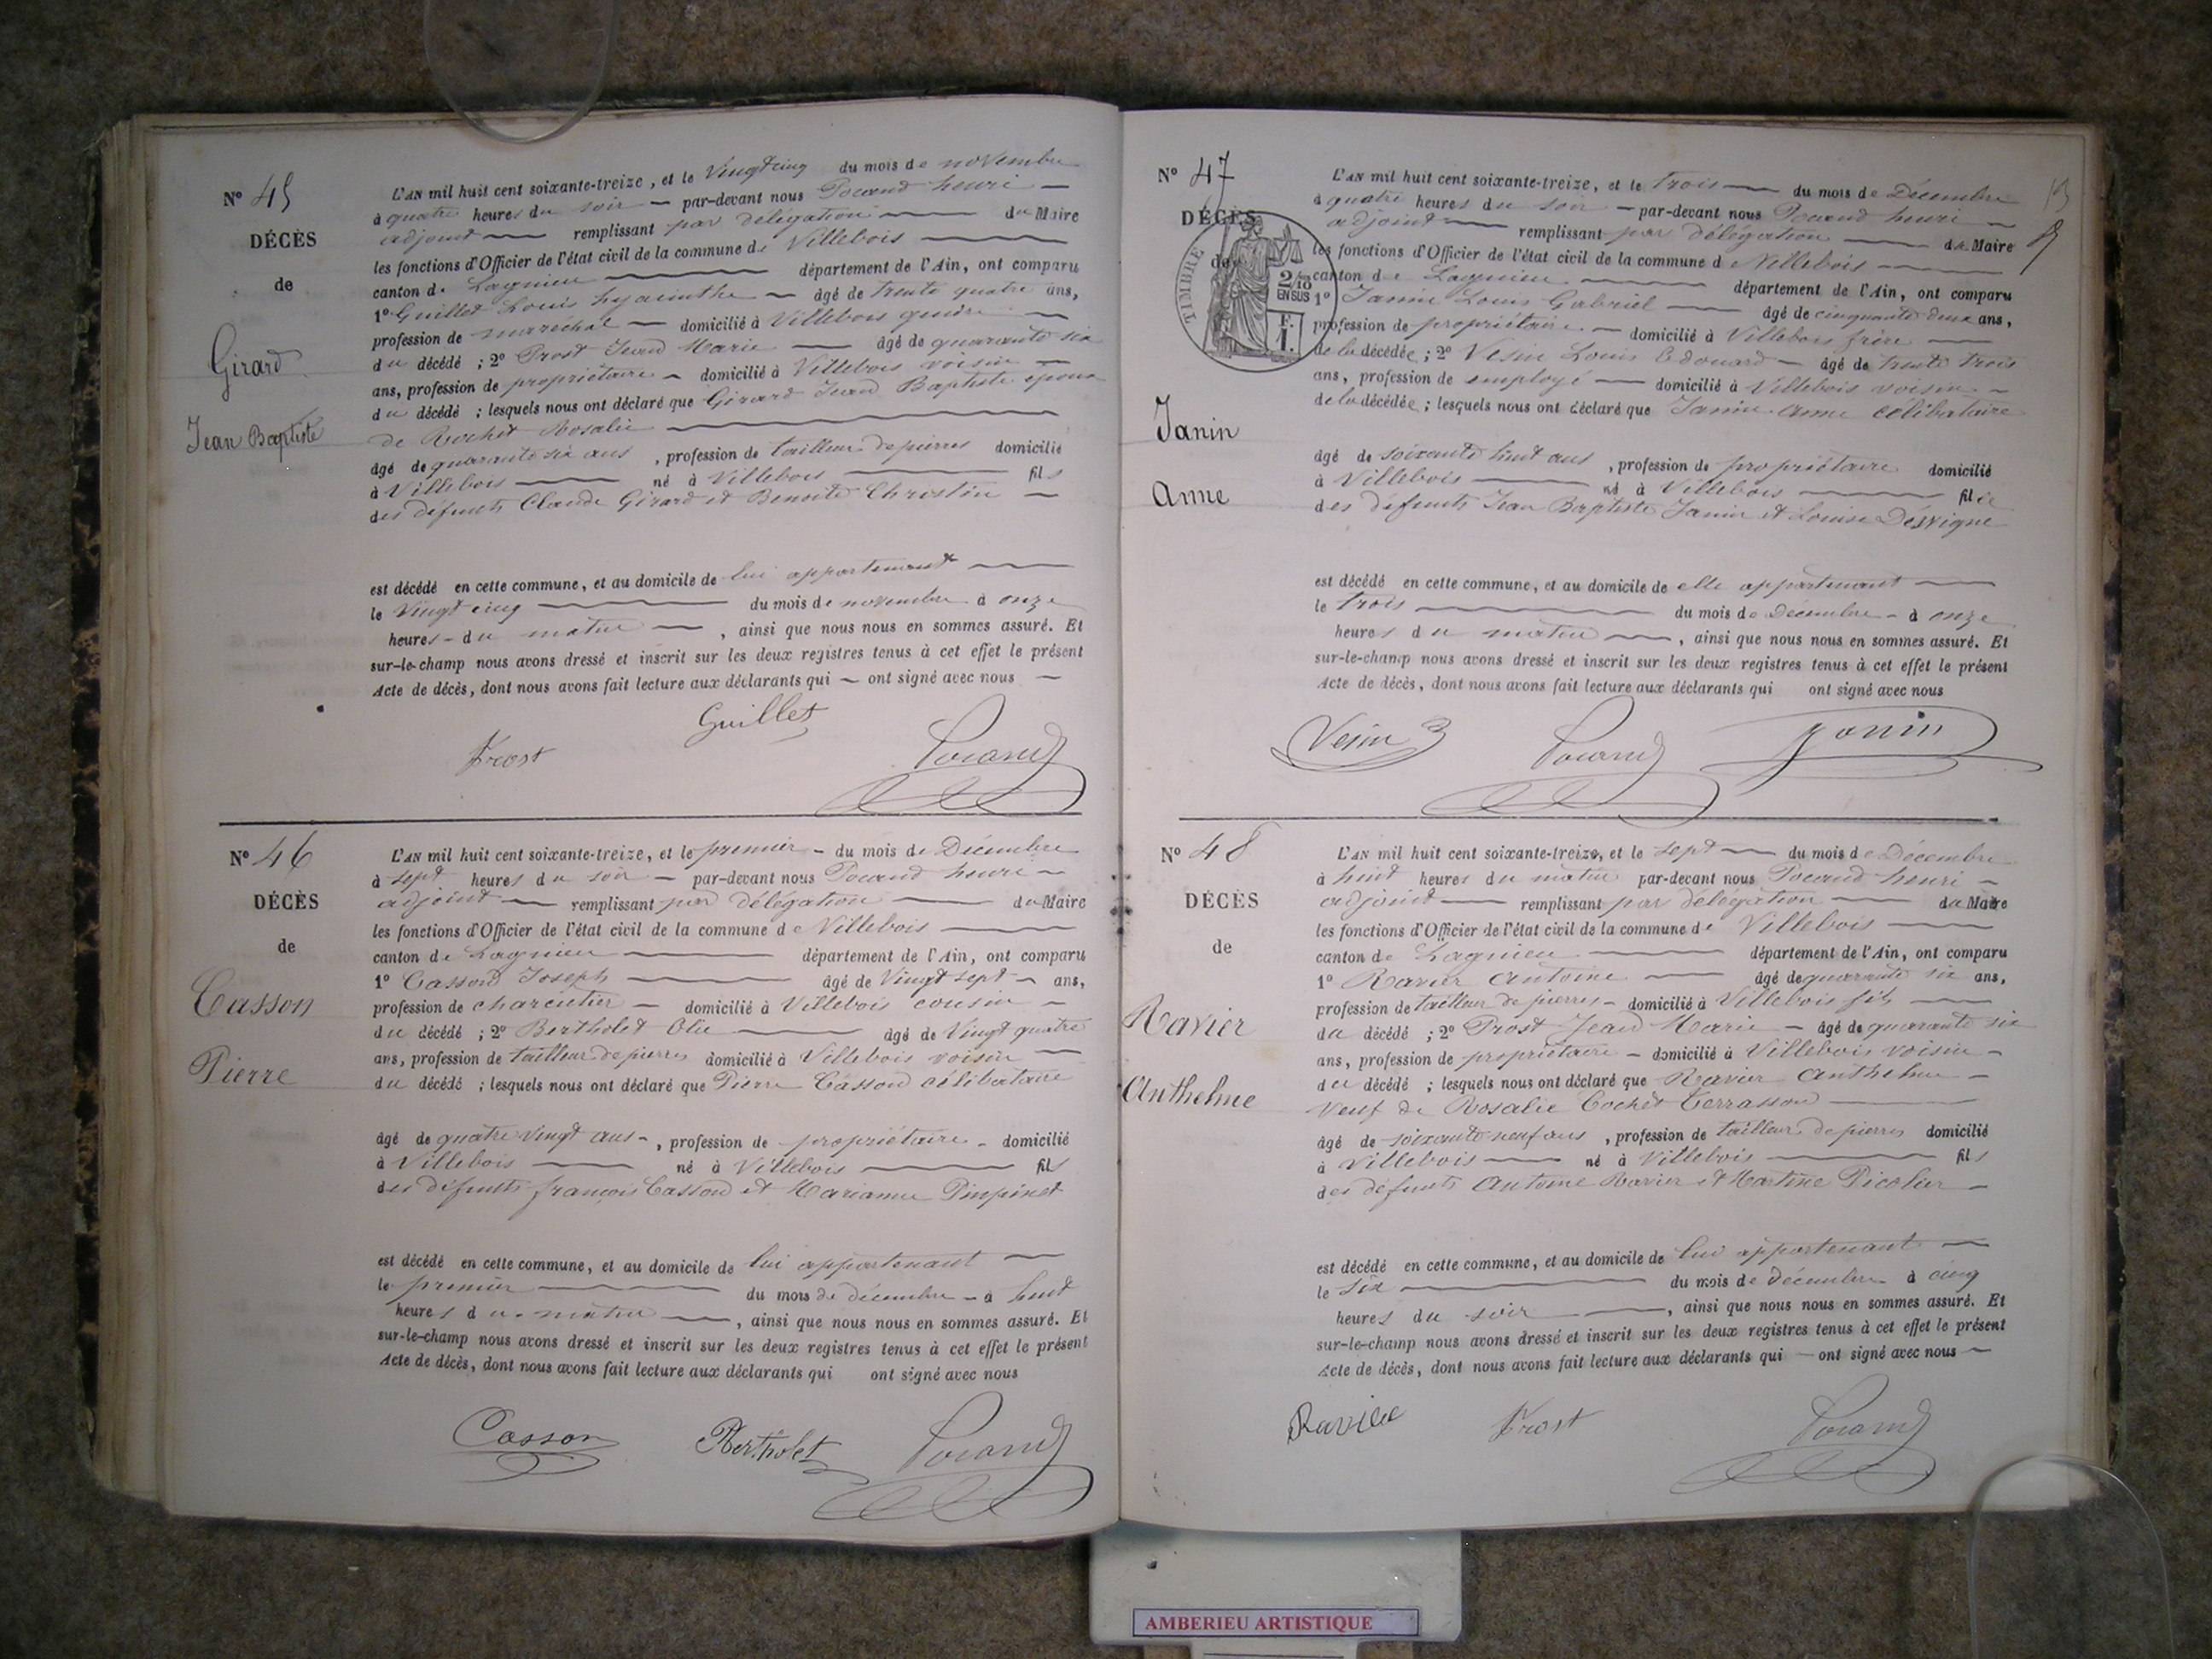 Nº 45
DÉCÈS
de
Girard
Jean Baptiste
L'AN mil huit cent soixante-treize, et le Vingt cinq du mois de novembre
à quatre heures du soir par-devant nous Pocand henri
adjoint remplissant par délégation du Maire
les fonctions d'Officier de l'état civil de la commune de Villebois
canton de Lagnieu département de l'Ain, ont comparu
1º Guillet Louis hyacinthe âgé de trente quatre ans,
profession de maréchal domicilié à Villebois gendre
du décédé ; 2º Prost Jean Marie âgé de quarante six
ans, profession de propriétaire domicilié à Villebois voisin
du décédé ; lesquels nous ont déclaré que Girard Jean Baptiste époux
de Rochet Rosalie
âgé de quarante six ans, profession de tailleur de pierres domicilié
à Villebois né à Villebois fils
des défunts Claude Girard et Benoite Christin
est décédé en cette commune, et au domicile de lui appartenant
le Vingt cinq du mois de novembre à onze
heures du matin, ainsi que nous nous en sommes assuré. Et
sur-le-champ nous avons dressé et inscrit sur les deux registres tenus à cet effet le présent
Acte de décès, dont nous avons fait lecture aux déclarants qui ont signé avec nous
Guillet
Prost Pocand
Nº 46
DÉCÈS
de
Casson
Pierre
L'AN mil huit cent soixante-treize, et le premier du mois de Décembre
à sept heures du soir par-devant nous Pocand henri
adjoint remplissant par délégation du Maire
les fonctions d'Officier de l'état civil de la commune de Villebois
canton de Lagnieu département de l'Ain, ont comparu
1º Casson Joseph âgé de Vingt sept ans,
profession de charcutier domicilié à Villebois cousin
du décédé ; 2º Bertholet âgé de Vingt quatre
ans, profession de tailleur de pierres domicilié à Villebois voisin
du décédé ; lesquels nous ont déclaré que Pierre Casson célibataire
âgé de quatre vingt ans, profession de propriétaire domicilié
à Villebois né à Villebois fils
des défunts françois Casson et Marianne Pinpinet
est décédé en cette commune, et au domicile de lui appartenant
le premier du mois de décembre à huit
heures du matin, ainsi que nous nous en sommes assuré. Et
sur-le-champ nous avons dressé et inscrit sur les deux registres tenus à cet effet le présent
Acte de décès, dont nous avons fait lecture aux déclarants qui ont signé avec nous
Casson Bertholet Pocand
Nº 47
DÉCÈS
de
TIMBRE
2/10
EN SUS
F.
1.
Janin
Anne
L'AN mil huit cent soixante-treize, et le trois du mois de Décembre
à quatre heures du soir par-devant nous Pocand henri
adjoint remplissant par délégation du Maire
les fonctions d'Officier de l'état civil de la commune de Villebois
canton de Lagnieu département de l'Ain, ont comparu
1º Janin Louis Gabriel âgé de cinquante deux ans,
profession de propriétaire domicilié à Villebois frère
de la décédée ; 2º Vesin Louis Edouard âgé de trente trois
ans, profession de employé domicilié à Villebois voisin
de la décédée ; lesquels nous ont déclaré que Janin Anne célibataire
âgé de soixante huit ans, profession de propriétaire domicilié
à Villebois né à Villebois fille
des défunts Jean Baptiste Janin et Louise Désvigne
est décédé en cette commune, et au domicile de elle appartenant
le trois du mois de Decembre à onze
heures du matin, ainsi que nous nous en sommes assuré. Et
sur-le-champ nous avons dressé et inscrit sur les deux registres tenus à cet effet le présent
Acte de décès, dont nous avons fait lecture aux déclarants qui ont signé avec nous
Vesin Pocand Janin
Nº 48
DÉCÈS
de
Ravier
Anthelme
L'AN mil huit cent soixante-treize, et le sept du mois de Décembre
à huit heures du matin par-devant nous Pocand henri
adjoint remplissant par délégation du Maire
les fonctions d'Officier de l'état civil de la commune de Villebois
canton de Lagnieu département de l'Ain, ont comparu
1º Ravier Antoine âgé de quarante six ans,
profession de tailleur de pierres domicilié à Villebois fils
du décédé ; 2º Prost Jean Marie âgé de quarante six
ans, profession de propriétaire domicilié à Villebois voisin
du décédé ; lesquels nous ont déclaré que Ravier Anthelme
veuf de Rosalie Cochet Terrasson
âgé de soixante neuf ans, profession de tailleur de pierres domicilié
à Villebois né à Villebois fils
des défunts Antoine Ravier et Martine Picolier
est décédé en cette commune, et au domicile de lui appartenant
le six du mois de Décembre à cinq
heures du soir, ainsi que nous nous en sommes assuré. Et
sur-le-champ nous avons dressé et inscrit sur les deux registres tenus à cet effet le présent
Acte de décès, dont nous avons fait lecture aux déclarants qui ont signé avec nous
Ravier Prost Pocand
AMBERIEU ARTISTIQUE